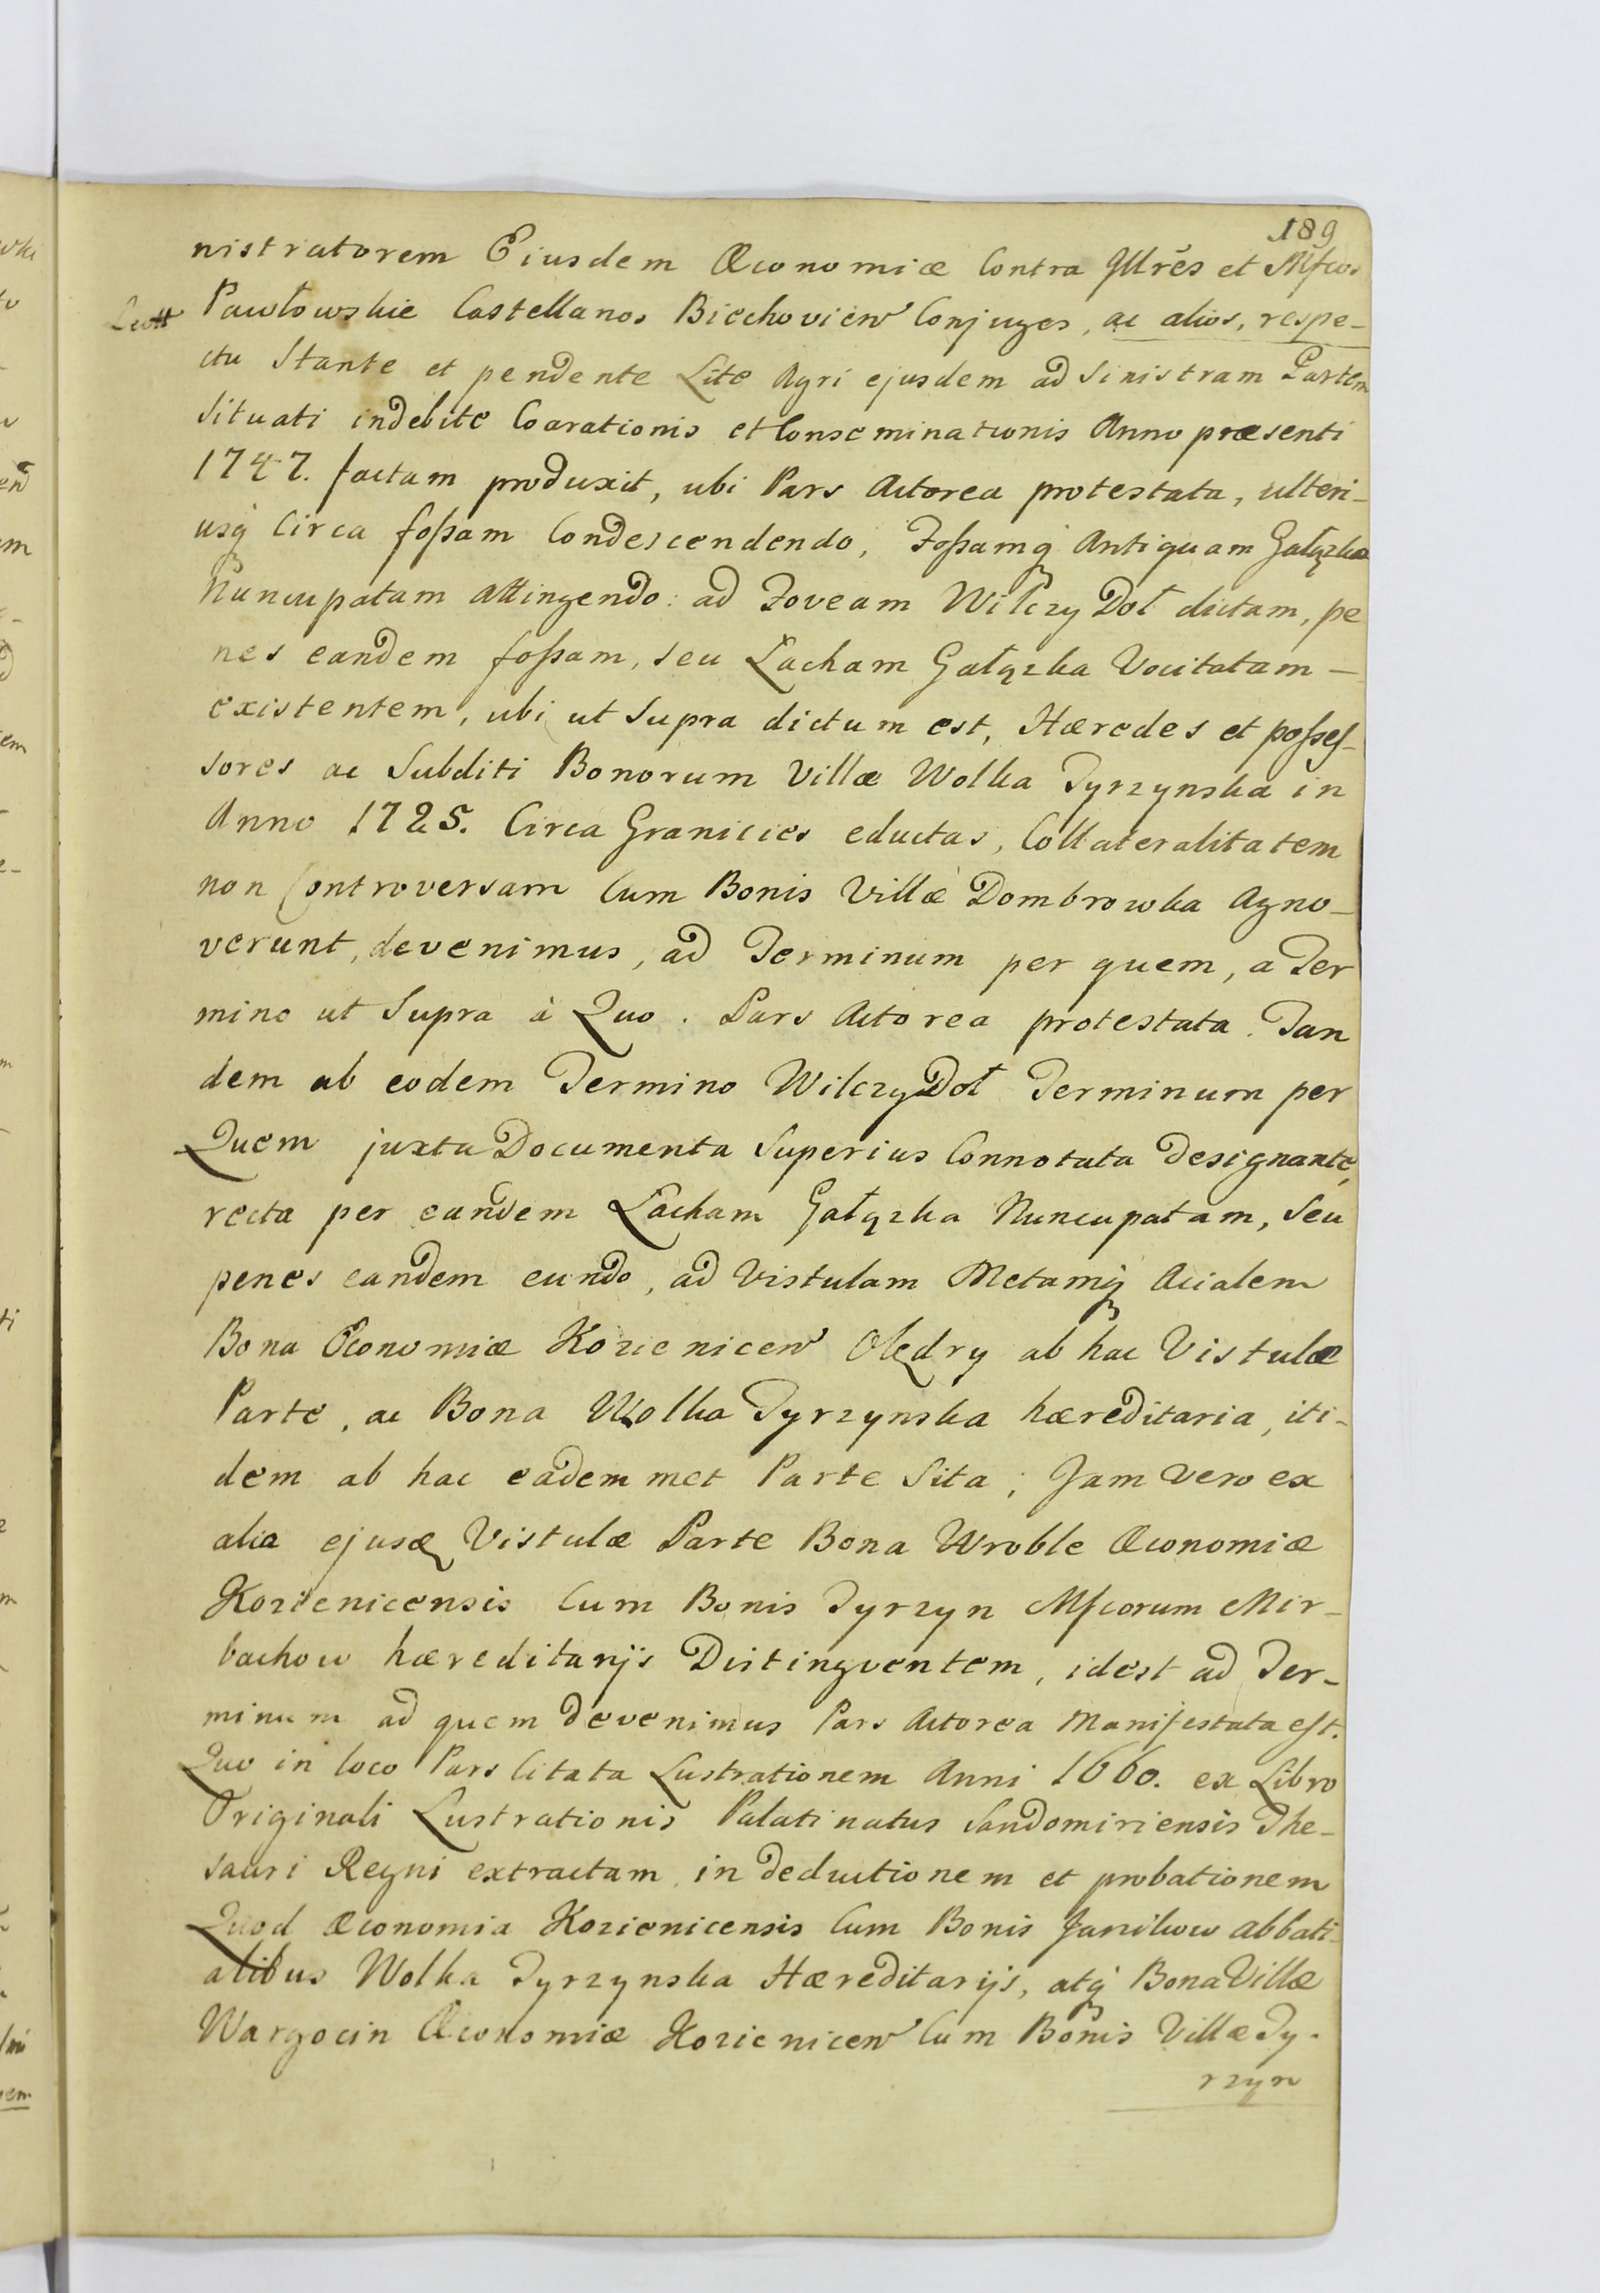 189
nistratorem Eiusdem Œconomiæ Contra Jllrēs et Mfcos
Pawłowskie Castellanos Biechovien Conjuges, ac alios, respe-
ctu Stante et pendente Lite Agri ejusdem ad Sinistram Partem
Situati indebite Coarationis et Conseminationis Anno præsenti
1747. factam produxit, ubi Pars Actorea protestata, ulteri-
usq̀ Circa foßam Condescendendo, Foßamq̀ Antiquam Gałązka
Nuncupatam attingendo: ad Foveam Wilczy Doł dictam, pe
nes eandem foßam, seu Lacham Gałązka Vocitatam —
existentem, ubi ut Supra dictum est, Hæredes et poßeß-
sores ac Subditi Bonorum Villæ Wolka Tyrzynska in
Anno 1725. Circa Granicies eductas, Collateralitatem
non Controversam Cum Bonis Villæ Dombrowka Agno-
verunt, devenimus, ad Terminum per quem, a Ter
mino ut Supra à Quo. Pars Actorea protestata. Tan
dem ab eodem Termino Wilczy Doł Terminum per
Quem juxta Documenta Superius Connotata Designante,
recta per eandem Lacham Gałązka Nuncupatam, Seu
penes eandem eundo, ad Vistulam Metamq̀ Acialem
Bona Œconomiæ Kozienicen Olędry ab hac Vistulæ
Parte, ac Bona Wolka Tyrzynska hæreditaria, iti-
dem ab hac eadem met Parte Sita; Jam Vero ex
alia ejusd Vistulæ Parte Bona Wroble Œconomiæ
Kozienicensis Cum Bonis Tyrzyn Mfcorum Mir-
bachow hæreditarijs Distingventem, idest ad Ter-
minum ad quem devenimus Pars Actorea Manifestata est.
Quo in loco Pars Citata Lustrationem Anni 1660. ex Libro
Originali Lustrationis Palatinatus Sandomiriensis The-
sauri Regni extractam in deductionem et probationem
Quod Œconomia Kozienicensis Cum Bonis Janikow abbati-
alibus Wolka Tyrzynska Hæreditarijs, atq̀ Bona Villæ
Wargocin Œconomiæ Kozienicen Cum Bonis Villæ Ty-
rzyn